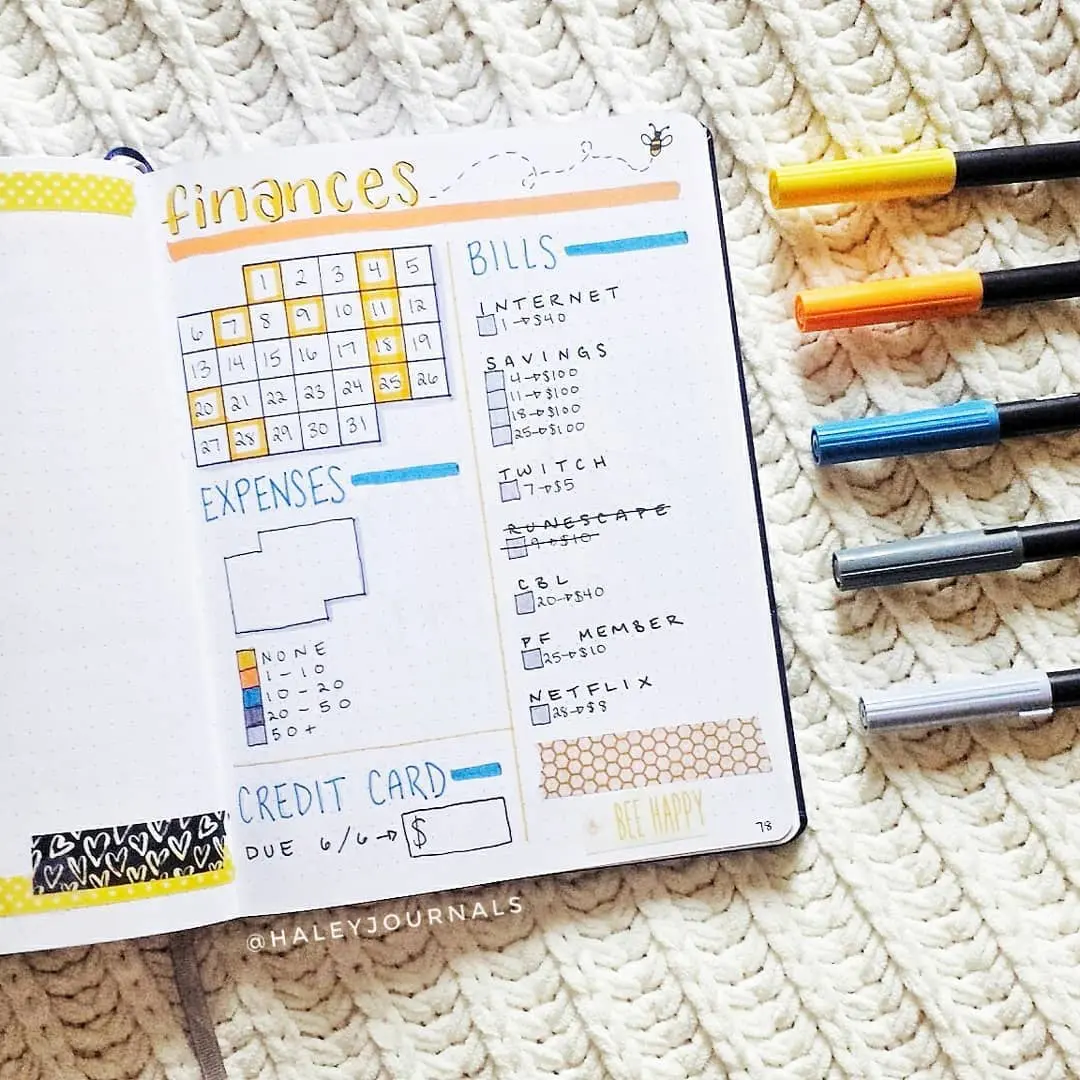 finances
1 2 3 4 5
6 7 8 9 10 11 12
13 14 15 16 17 18 19
20 21 22 23 24 25 26
27 28 29 30 31
EXPENSES
NONE
1-10
10-20
20-50
50+
CREDIT CARD
DUE 6/6→ $
BILLS
INTERNET
1→$40
SAVINGS
4→$100
11→$100
18→$100
25→$100
TWITCH
7→$5
RUNESCAPE
9→$10
CBL
20→$40
PF MEMBER
25→$10
NETFLIX
28→$8
BEE HAPPY
78
@HALEYJOURNALS